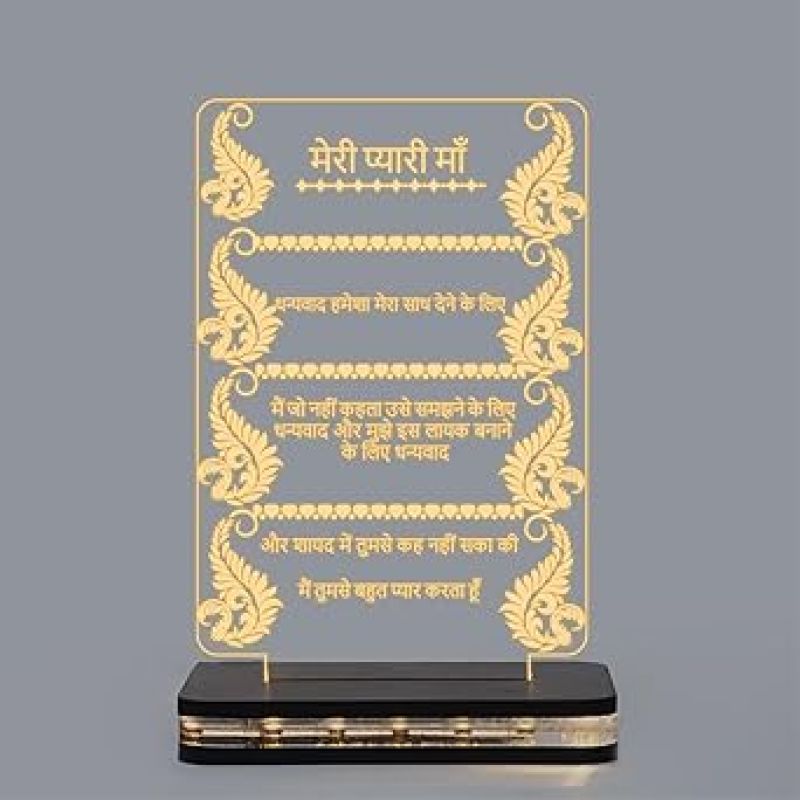 मेरी प्यारी माँ
धन्यवाद हमेशा मेरा साथ देने के लिए
मैं जो नहीं कहता उसे समझने के लिए
धन्यवाद और मुझे इस लायक बनाने
के लिए धन्यवाद
और शायद में तुमसे कह नहीं सका की
में तुमसे बहुत प्यार करता हूँ